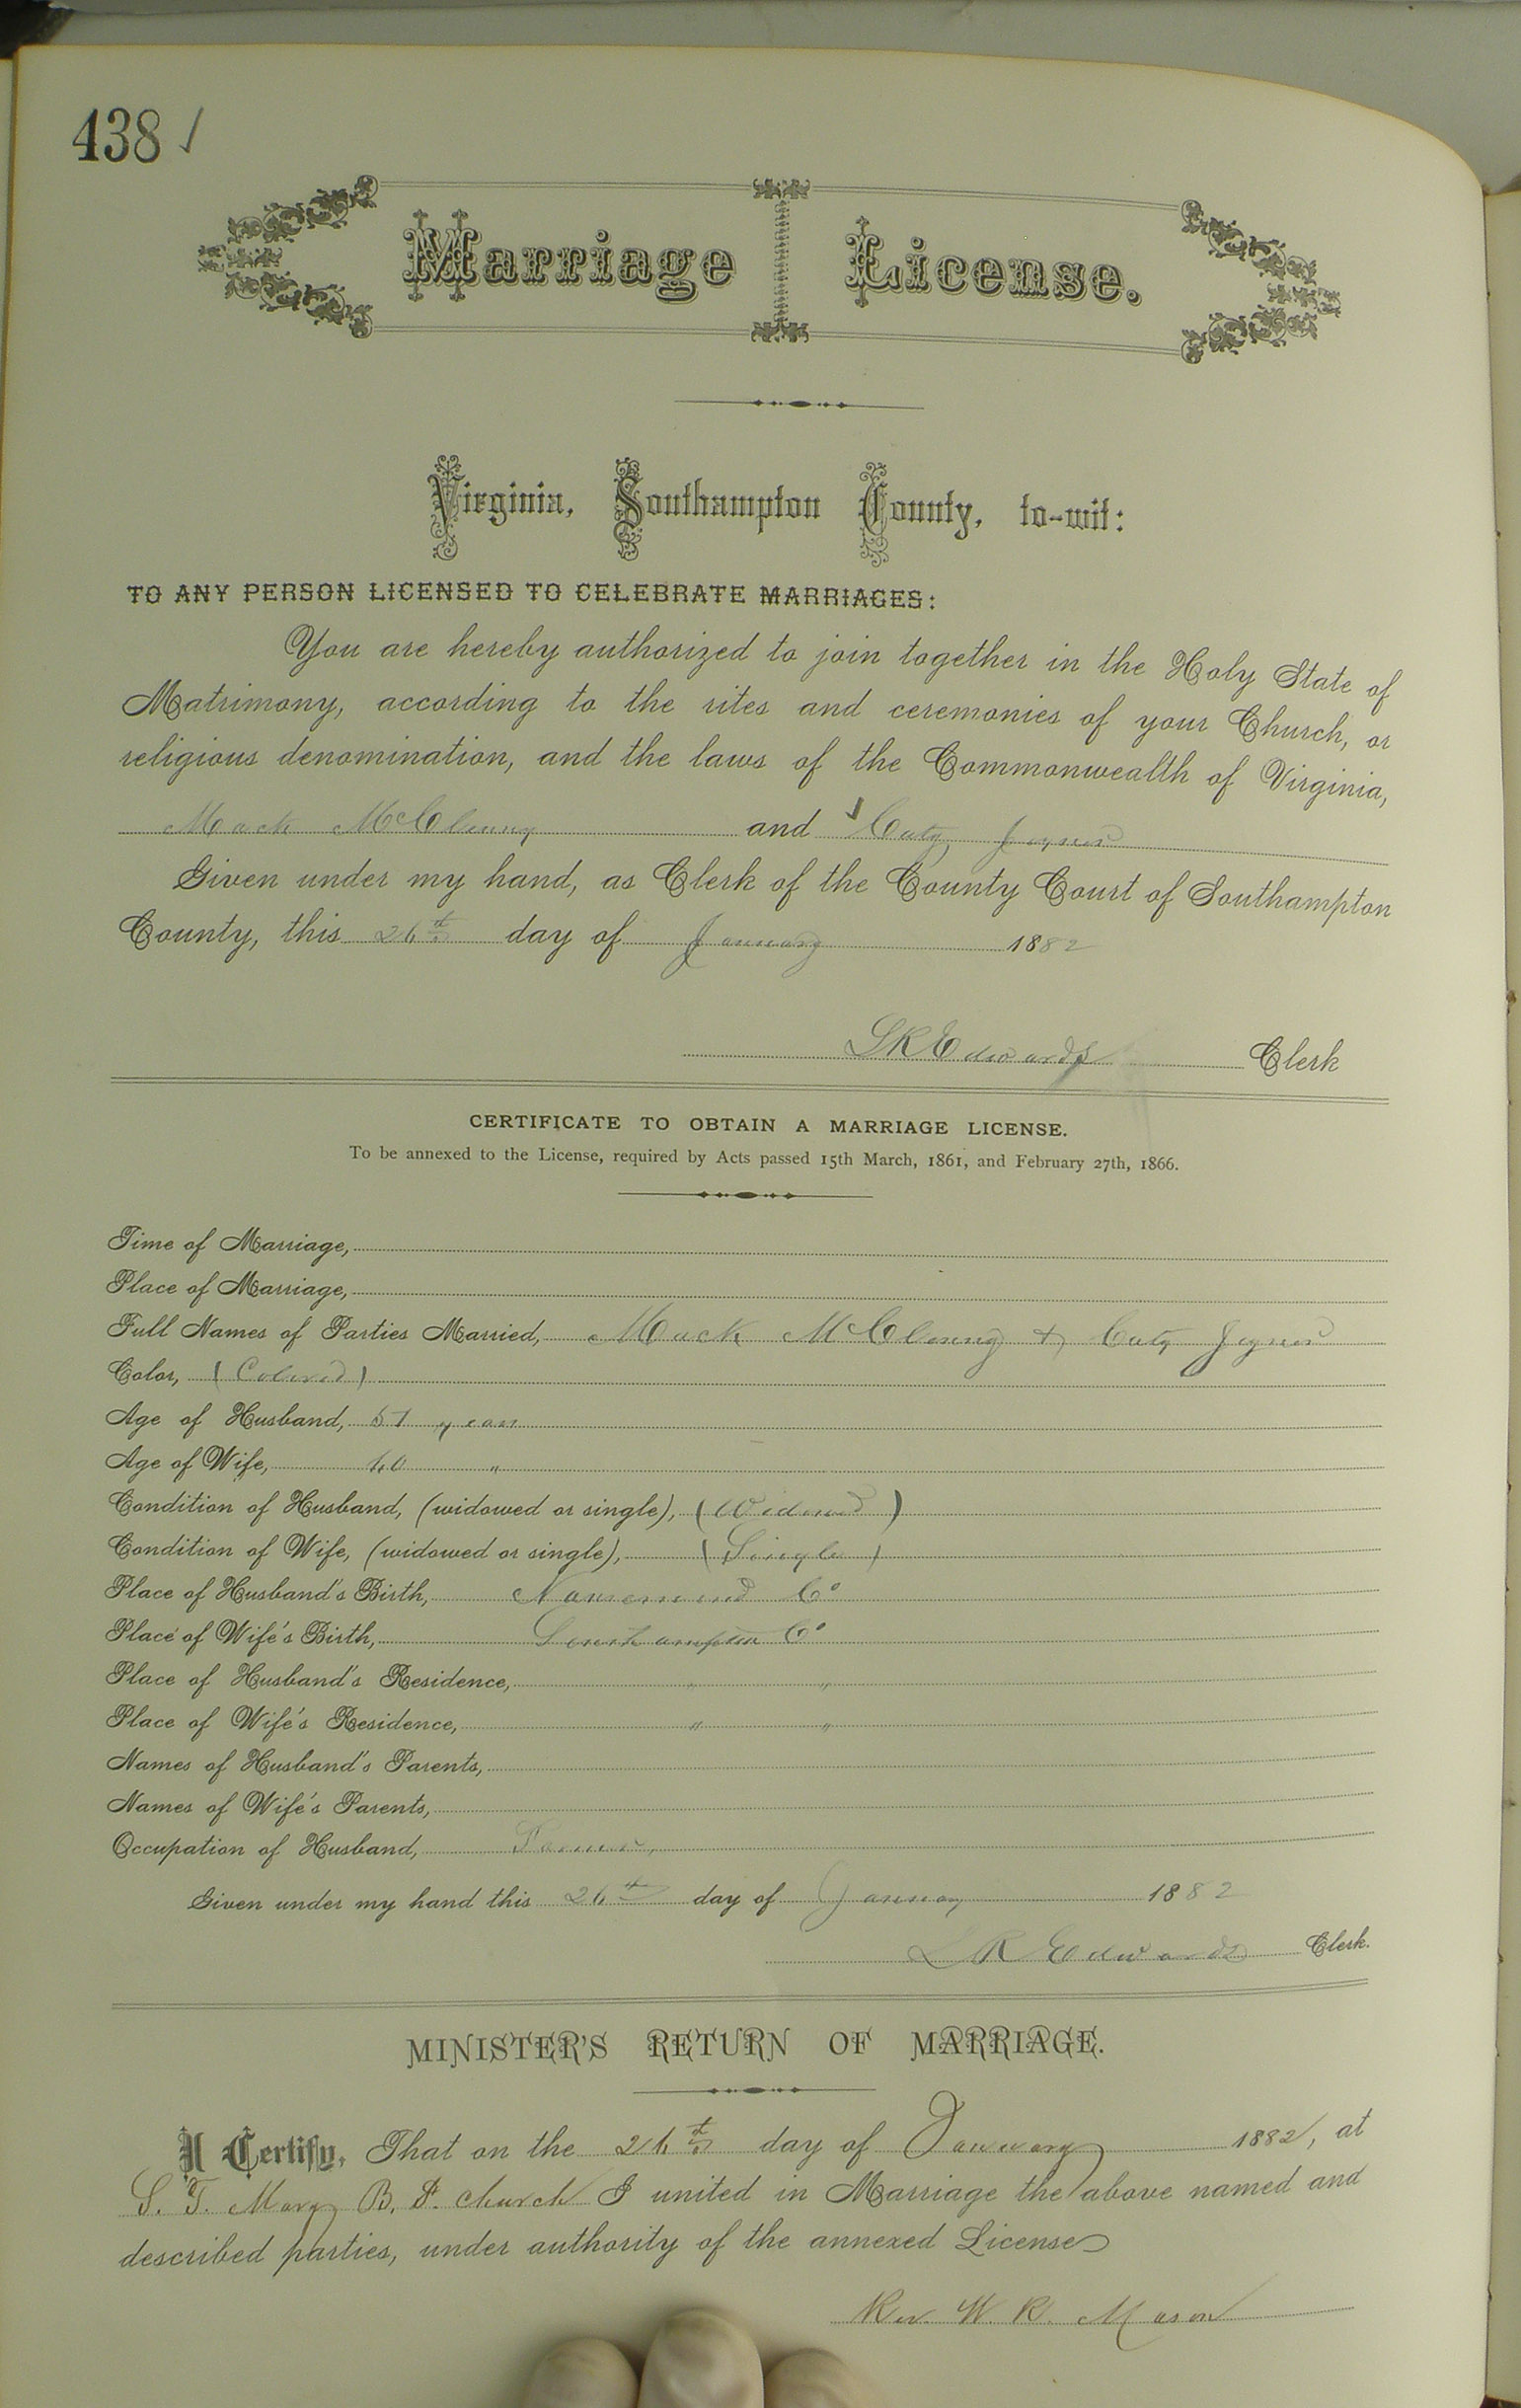 438 ✓
Marriage License.
Virginia, Southampton County, to-wit:
TO ANY PERSON LICENSED TO CELEBRATE MARRIAGES:
You are hereby authorized to join together in the Holy State of
Matrimony, according to the rites and ceremonies of your Church, or
religious denomination, and the laws of the Commonwealth of Virginia,
Mack McClenny and Caty Joyner
Given under my hand, as Clerk of the County Court of Southampton
County, this 26th day of January 1882
L R Edwards Clerk
CERTIFICATE TO OBTAIN A MARRIAGE LICENSE.
To be annexed to the License, required by Acts passed 15th March, 1861, and February 27th, 1866.
Time of Marriage,
Place of Marriage,
Full Names of Parties Married, Mack McClenny & Caty Joyner
Color, (Colored)
Age of Husband, years
Age of Wife, 40 "
Condition of Husband, (widowed or single), (Widowed)
Condition of Wife, (widowed or single), (Single)
Place of Husband's Birth, Nansemond Co
Place of Wife's Birth, Southampton Co
Place of Husband's Residence, " "
Place of Wife's Residence, " "
Names of Husband's Parents,
Names of Wife's Parents,
Occupation of Husband, Farmer,
Given under my hand this 26th day of January 1882
L R Edwards Clerk.
MINISTER'S RETURN OF MARRIAGE.
I Certify, That on the 26th day of January 1882, at
S. T. Mary B. church I united in Marriage the above named and
described parties, under authority of the annexed License
Rev. W. R. Mason